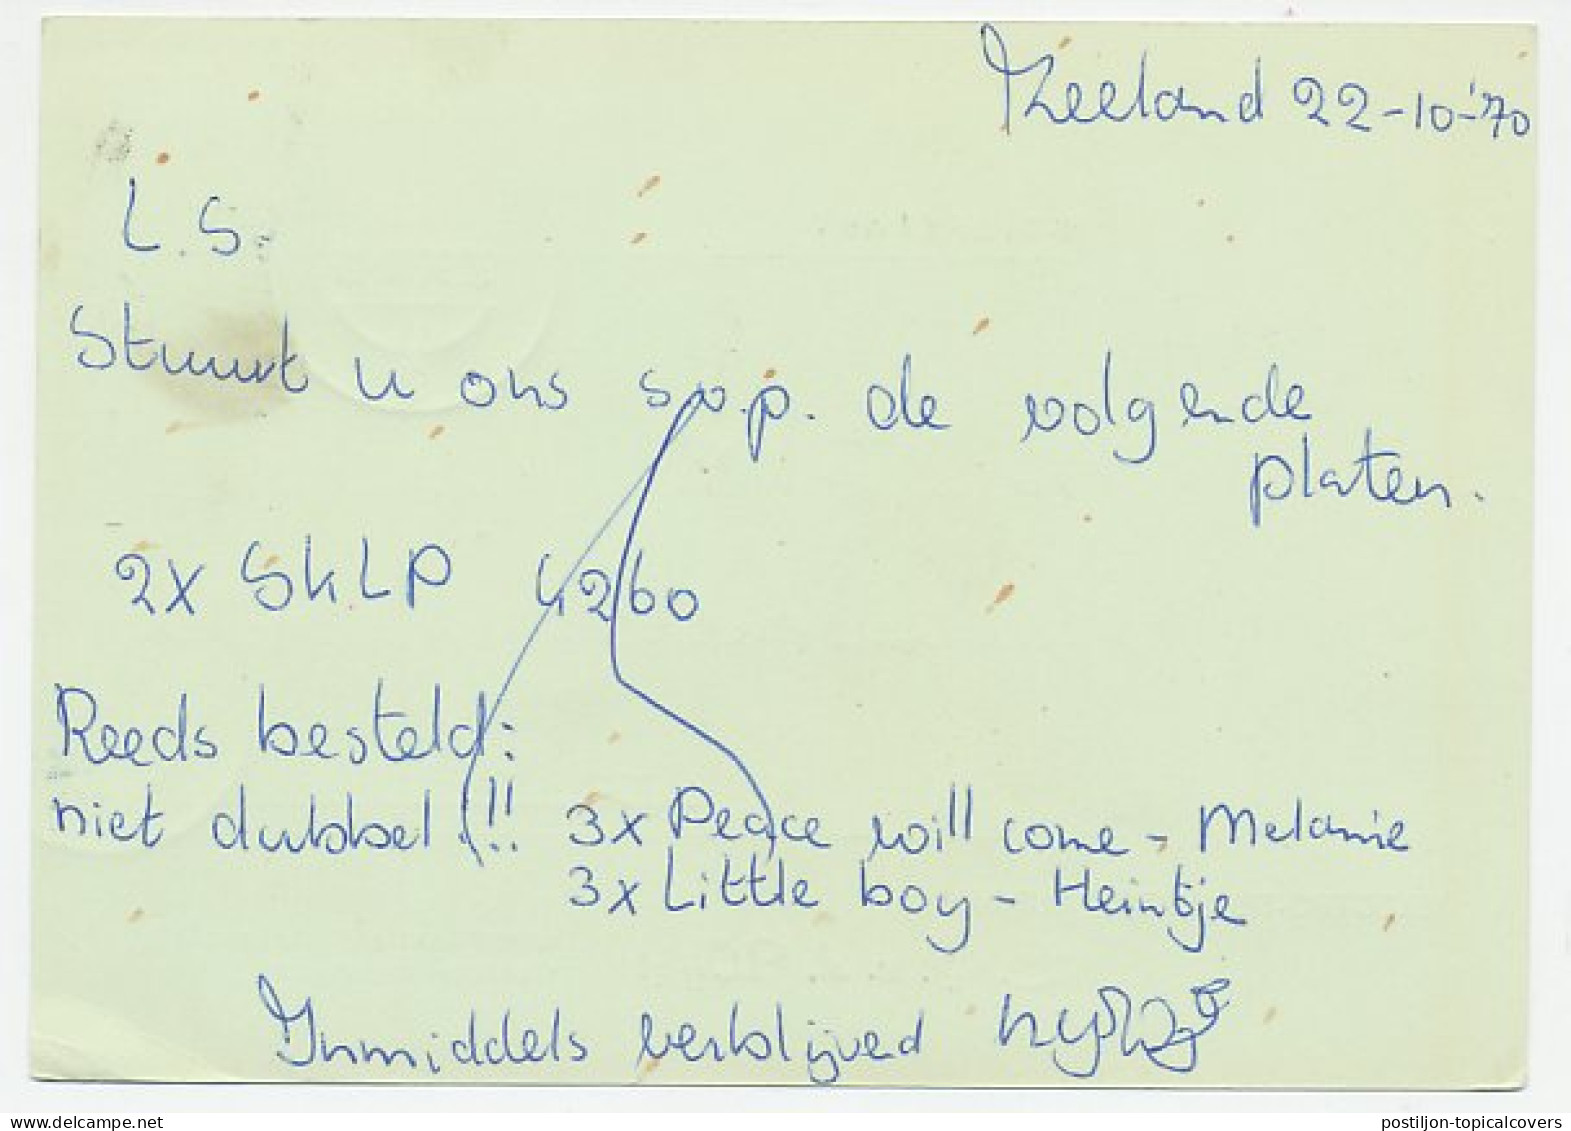 Zeeland 22-10-'70
L.S.
Stuurt u ons s.v.p. de volgende
platen.
2x SKLP 4260
Reeds besteld:
niet dubbel!!! 3x Peace will come - Melanie
3x Little boy - Heintje
Inmiddels verblijvend
www.delcampe.net
postiljon-topicalcovers